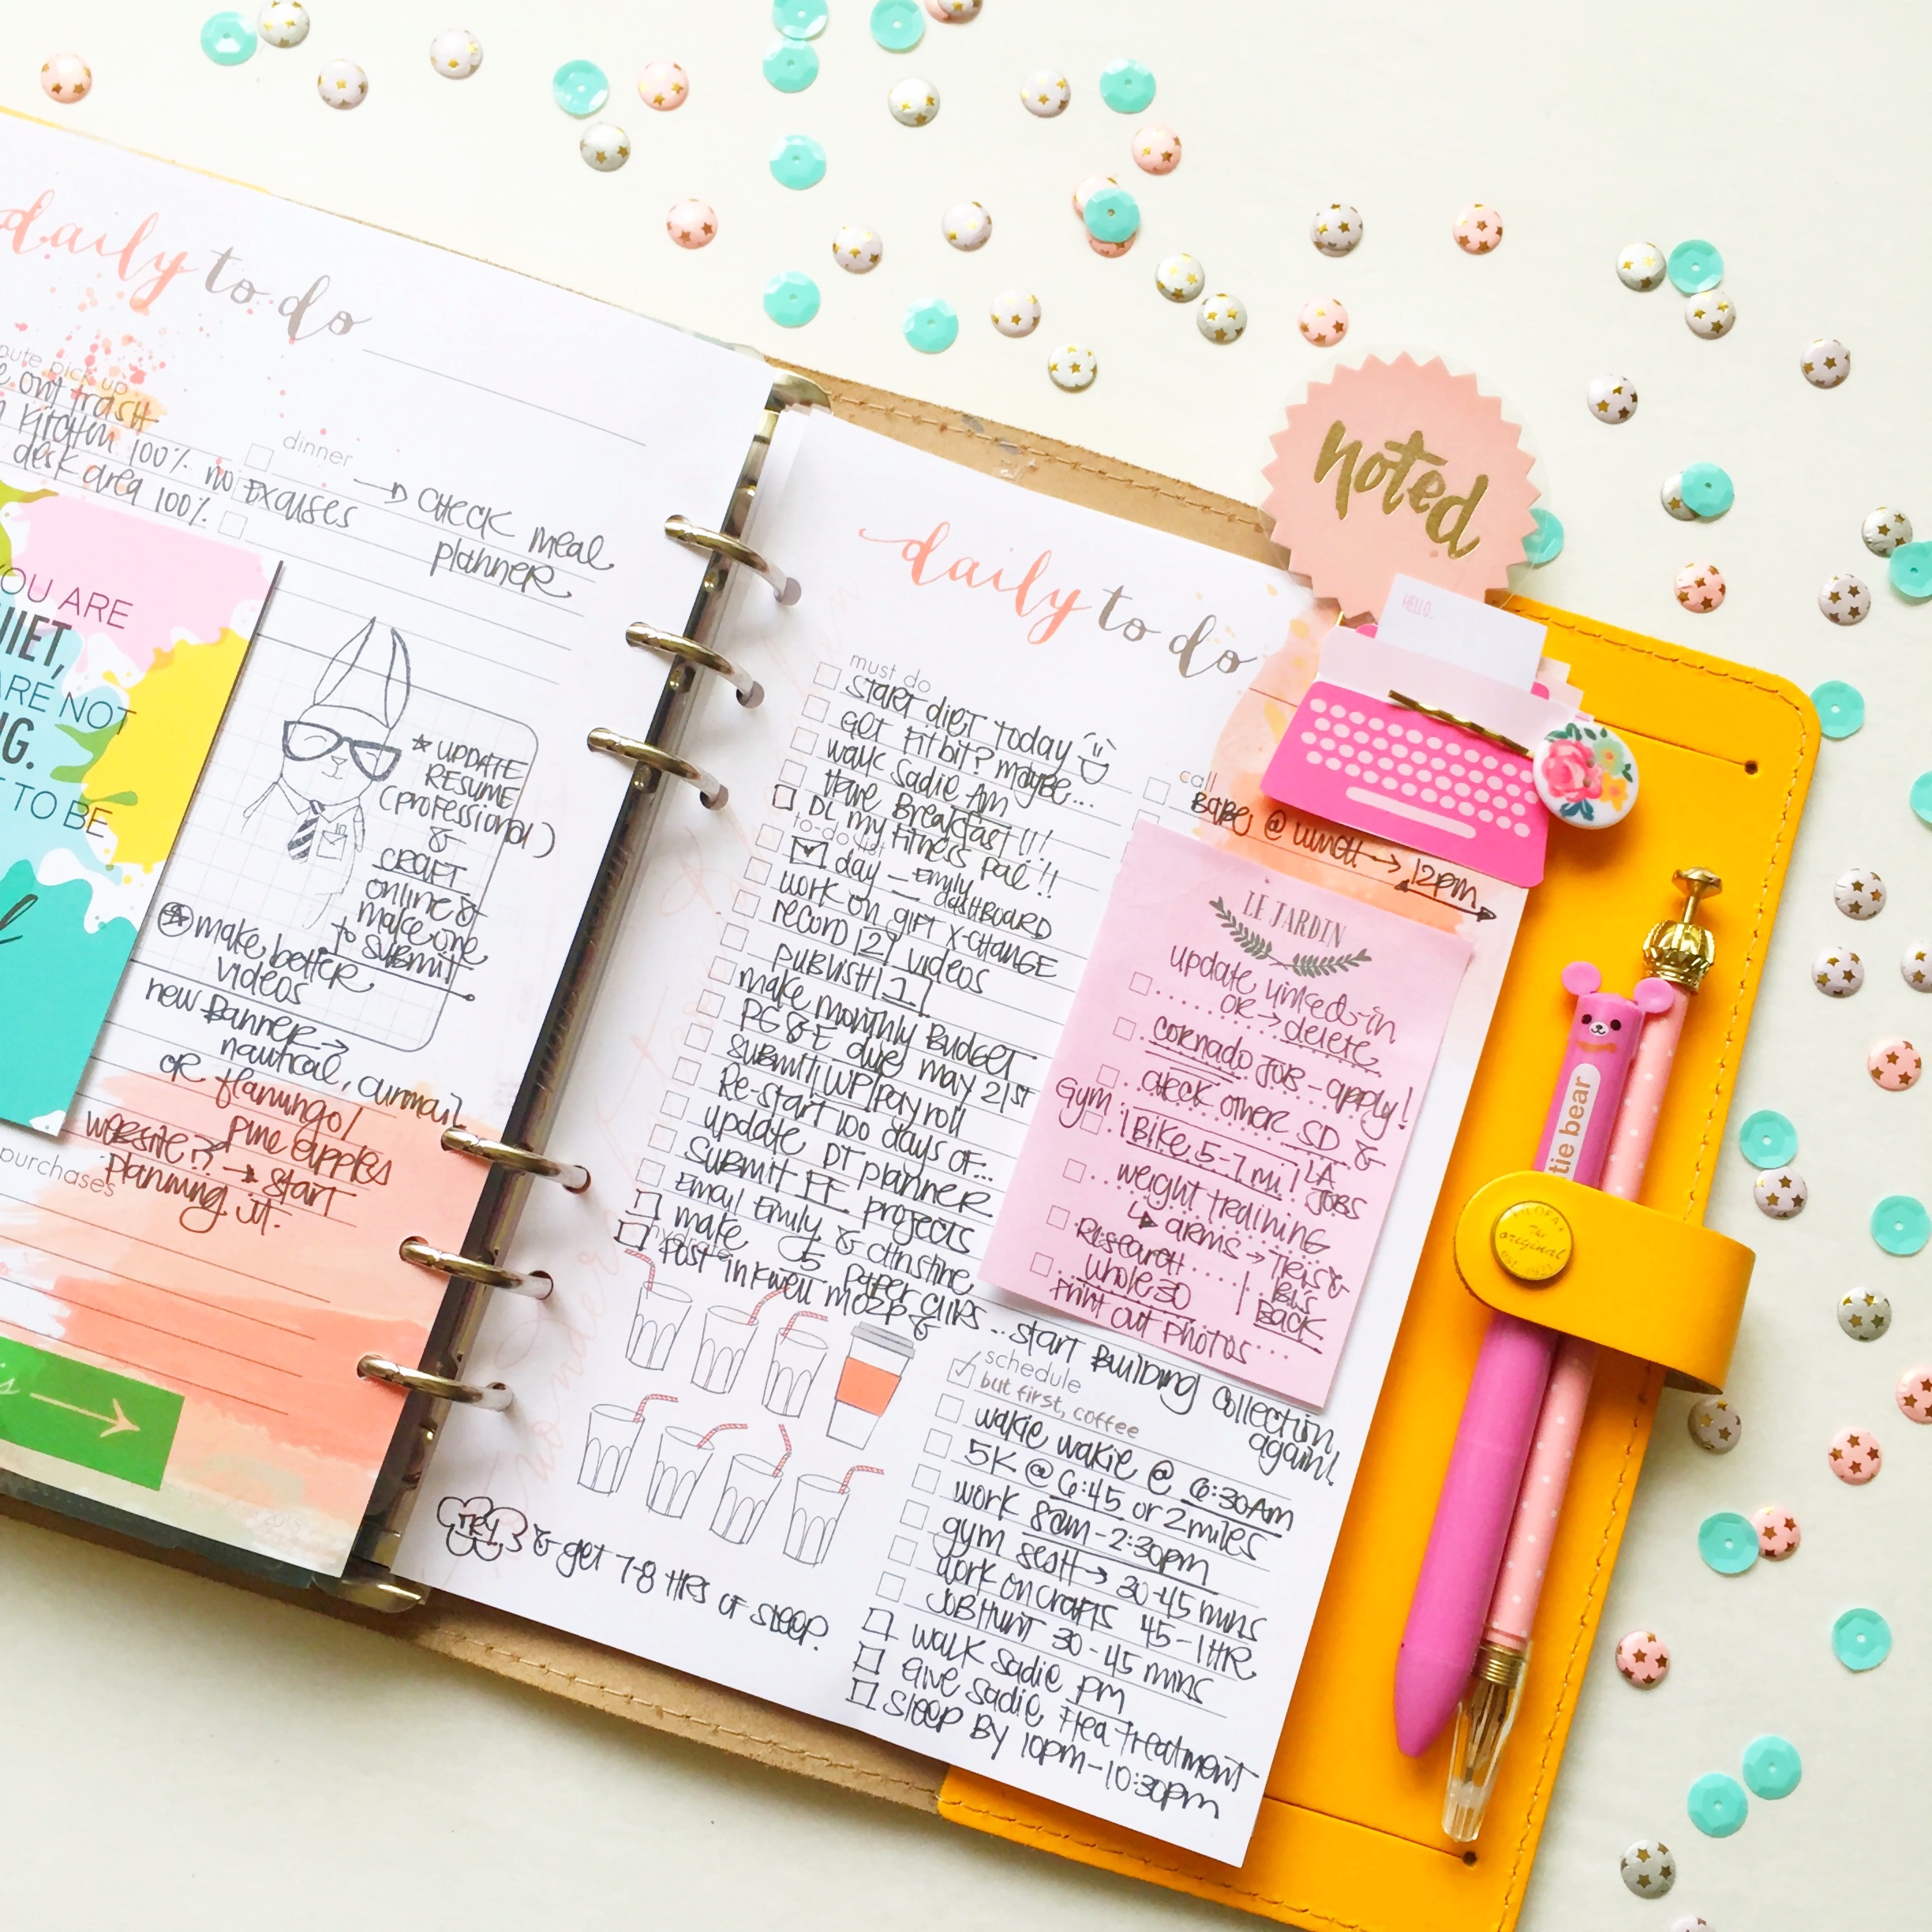 daily to do
pick up
out trash
kitchen 100% no excuses
desk area 100%
dinner
→ check meal
planner
YOU ARE
ARE NOT
TO BE
* UPDATE
RESUME
(professional)
&
CRAFT
online &
make one
to submit
make better
videos
new Banner →
nautical,
or flamingo/
pine apples
website?? → start
planning it.
purchases
daily to do
must do
start diet today
get fitbit? maybe...
walk Sadie AM
Have Breakfast!!!
DL my Fitness Pal!!
to-do
day — Emily
DASHBOARD
work on gift X-CHANGE
record 2 videos
publish 1
make monthly Budget
PG&E due may 21st
submit WP/payroll
Re-start 100 days of...
update DT planner
submit FE projects
Email Emily & Christine
make 5 paper clips
Post inkwell
hydrate
call
Babe @ lunch → 12pm
noted
HELLO...
LE JARDIN
update linked-in
OR → delete
cornado JOB - apply!
check other SD &
LA
JOBS
Gym: Bike 5-7 mi
weight training
↳ arms → Tri's &
Bi's
BACK
Research
whole30
Print out photos
..start Building collection
again!
schedule
but first, coffee
wakie wakie @ 6:30AM
5K @ 6:45 or 2 miles
work 8am - 2:30pm
gym sesh → 30-45 mins
work on crafts 45-1HR
JOB HUNT 30-45 mins
walk Sadie PM
give Sadie Flea Treatment
sleep By 10pm-10:30pm
TRY 3 & get 7-8 HRS of sleep.
tie bear
The
original